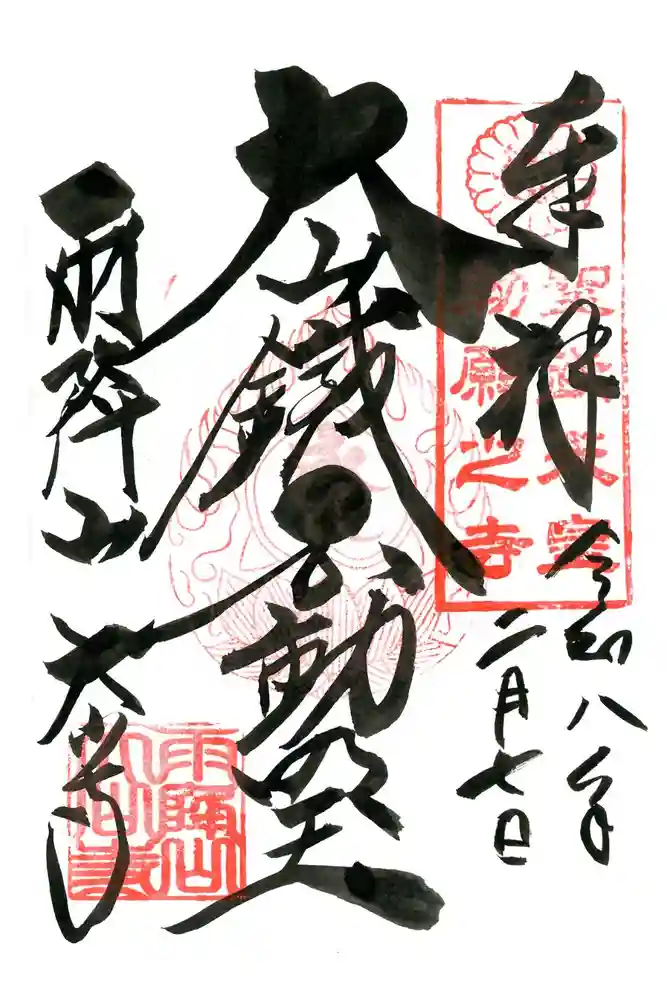 奉拝
令和八年
二月七日
聖武天皇
勅願之寺
大山鐵不動明王
雨降山
大山寺